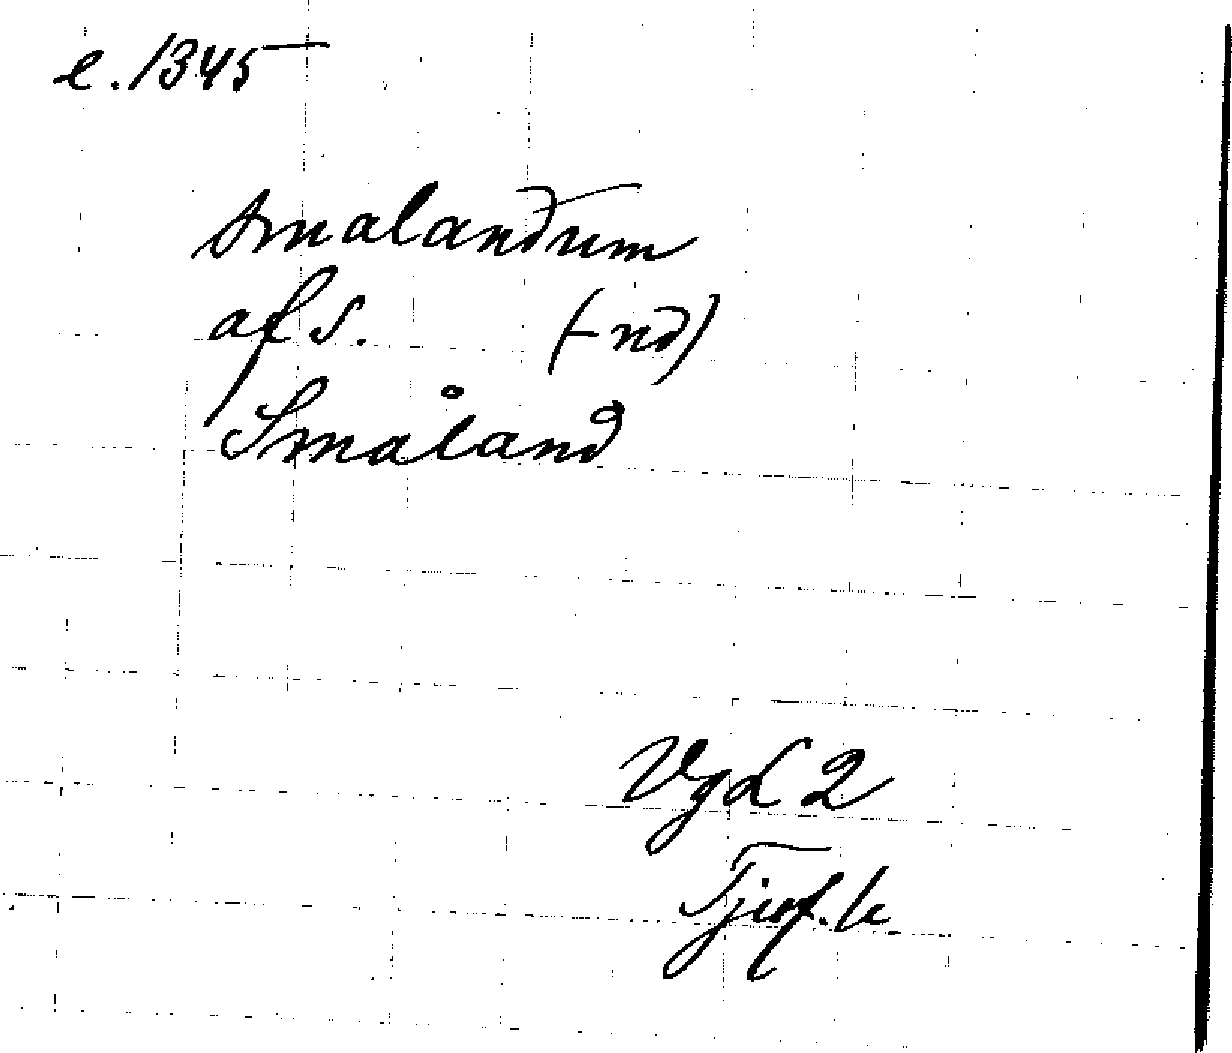 e. 1345
smalandum
af s. (-nd)
Småland
VgL 2
Tjuf. b.